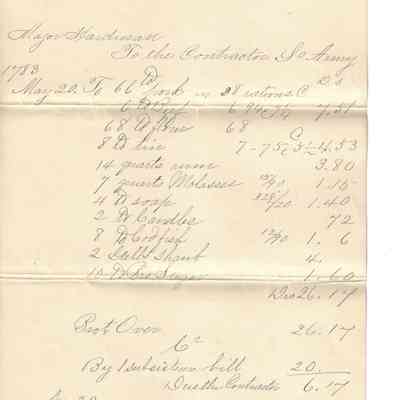 Major Hardman
To the Contractor So Army
1783
May 20. To 66 lb pork 28 rations
6 94 74 7.51
68 lb flour 68
8 lb rice 7-75 4.53
14 quarts rum 3.80
7 quarts Molasses 1.15
4 lb soap 1.40
2 lb Candles 72
8 lb Codfish 1. 6
2 4.
10 lb Sugar 1.60
26.17
Brot Over 26.17
Cr
By 1 subsistence bill 20.
Due the Contractor 6.17